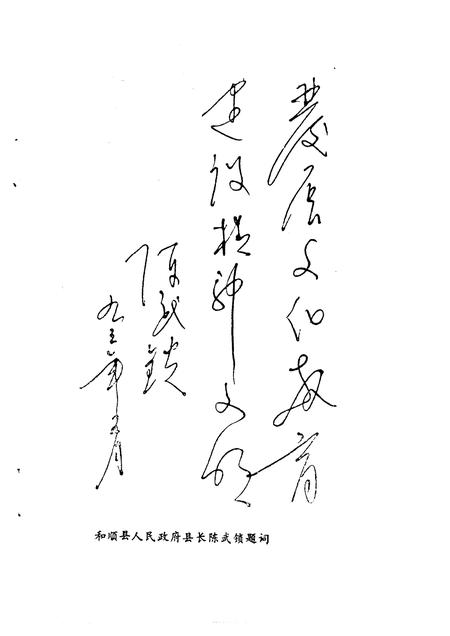 發展文化教育
建设精神文明
陈武锁
九三年 月
和顺县人民政府县长陈武锁题词